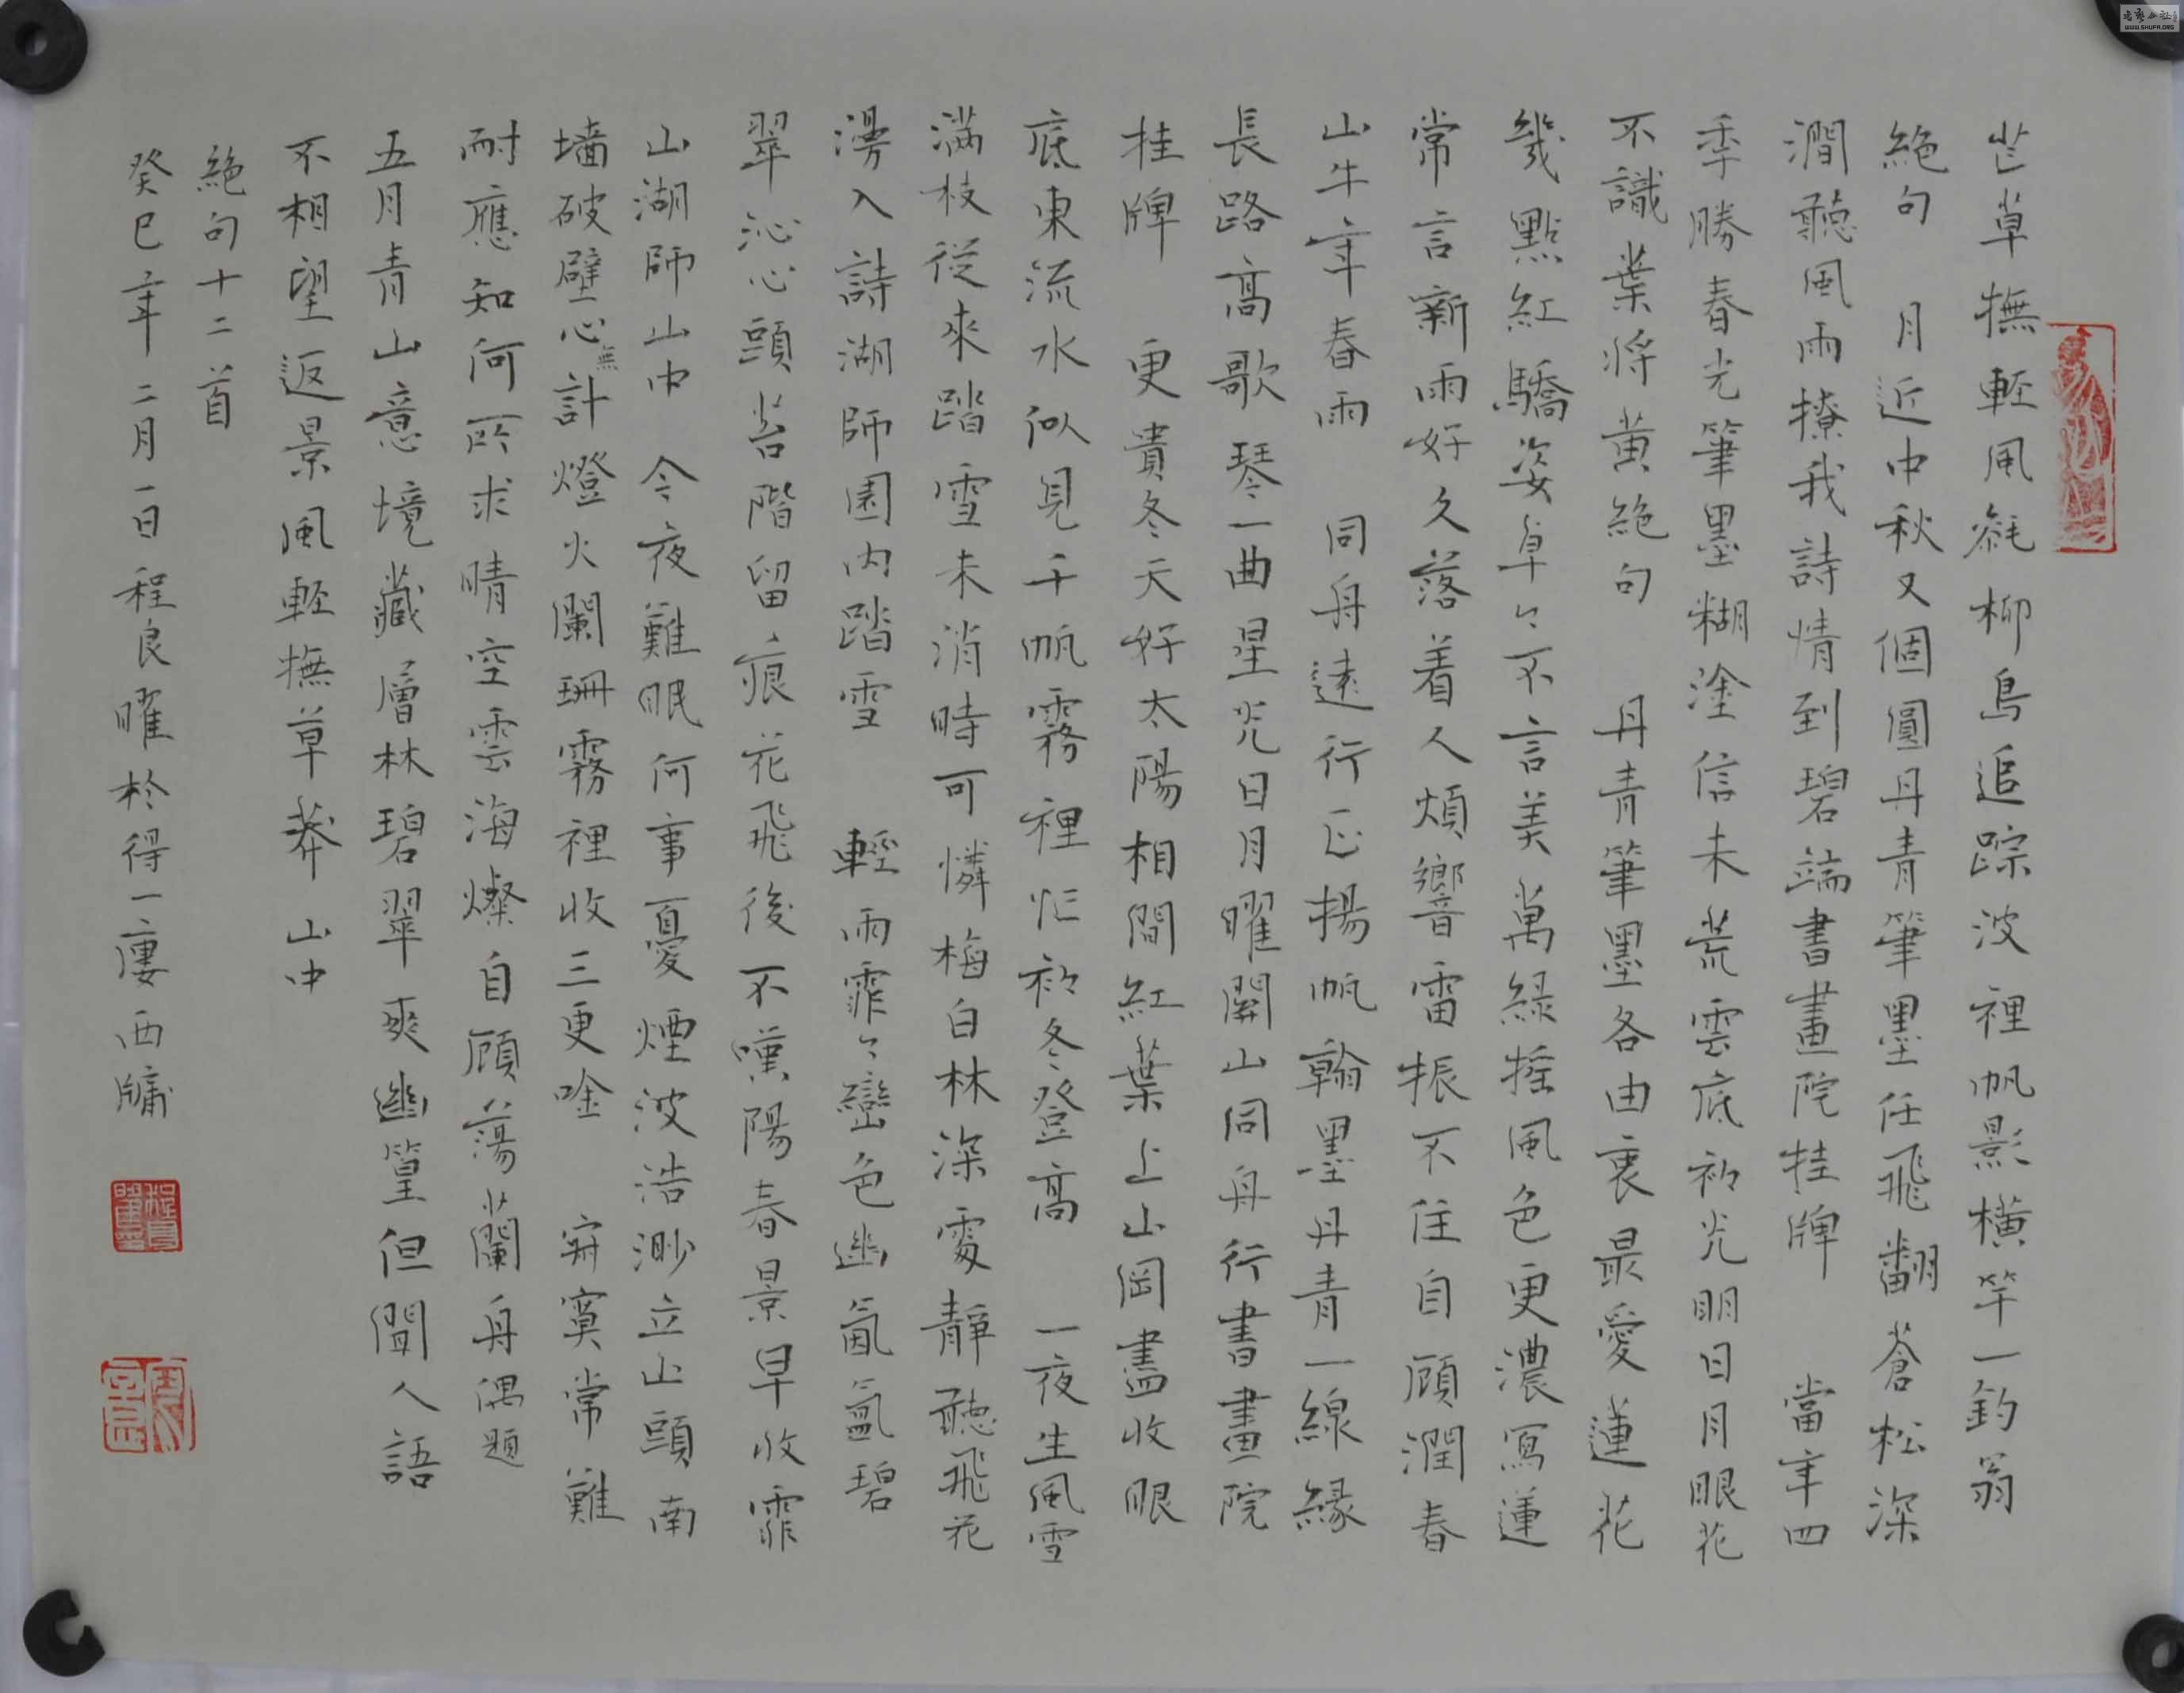 芒草撫輕風毵柳島追踪波裡帆影橫竿一釣翁
絕句　月近中秋又個圓丹青筆墨任飛翻蒼松深
澗聽風雨撩我詩情到碧端書畫院挂牌　當年四
季勝春光筆墨糊塗信未荒雲底初光明日月眼花
不識業將黃絕句　丹青筆墨各由衷最愛蓮花
幾點紅驕姿草々不言美萬綠搖風色更濃寫蓮
常言新雨好久落着人煩響雷振不住自顧潤春
山牛年春雨　同舟遠行正揚帆翰墨丹青一線緣
長路高歌琴一曲星光日月曜關山同舟行書畫院
挂牌　更貴冬天好太陽相間紅葉上山岡盡收眼
底東流水似見千帆霧裡忙初冬登高　一夜生風雪
滿枝從來踏雪未消時可憐梅白林深處靜聽飛花
漫入詩湖師園內踏雪　輕雨霏々巒色幽氤氳碧
翠沁心頭苔階留痕花飛後不嘆陽春景早收霏
山湖師山中　今夜難眠何事憂煙波浩渺立山頭南
墙破壁心無計燈火闌珊霧裡收三更吟　寂寞常難
耐應知何所求晴空雲海燦自顧蕩蘭舟偶題
五月青山意境藏層林碧翠爽幽篁但聞人語
不相望返景風輕撫草莽　山中
絕句十二首
癸巳年二月一日程良曜於得一廔西牖
WWW.SHUFA.ORG